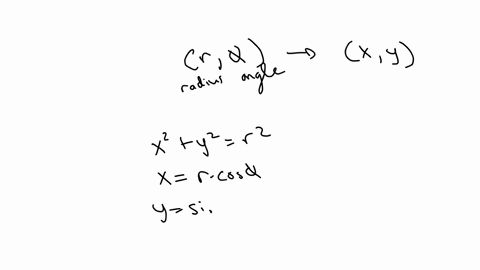 (r, α) → (x, y)
radius angle
x² + y² = r²
x = r·cosα
y = si.